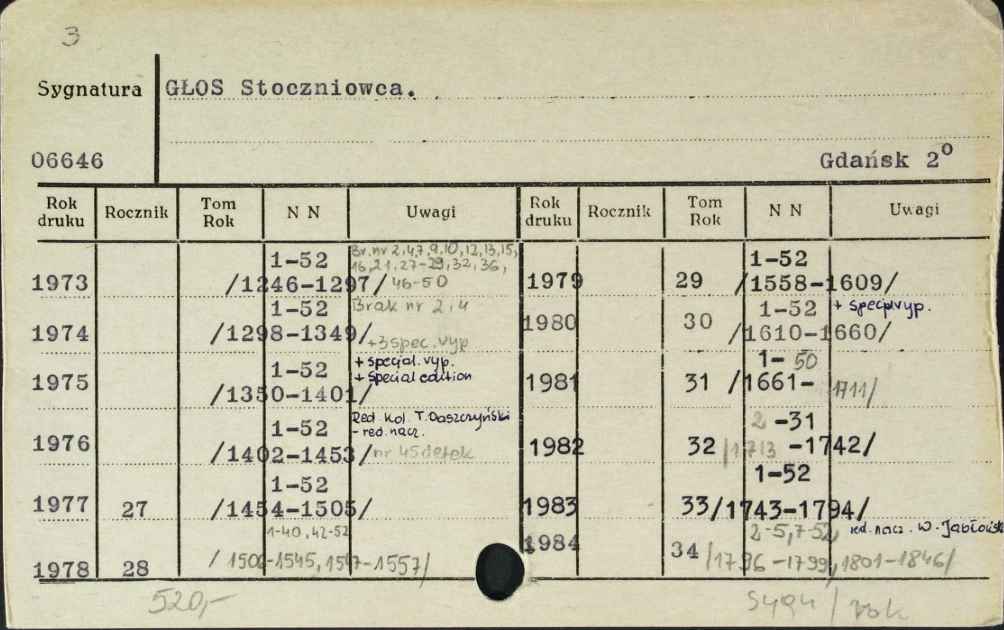 3
Sygnatura GŁOS Stoczniowca.
06646 Gdańsk 2º
Rok druku Rocznik Tom Rok N N Uwagi Rok druku Rocznik Tom Rok N N Uwagi
1973 1-52 /1246-1297/ Br. nr 2,4,7,9,10,12,13,15, 16,21,27-29,32,36, 46-50
1974 1-52 /1298-1349/ Brak nr 2, 4 +3 spec. wyp
1975 1-52 /1350-1401/ + specjal. wyp. + Special edition
1976 1-52 /1402-1453/ Red. Kol. T. Daszczyński - red. nacz. nr 45
1977 27 1-52 /1454-1505/
1978 28 1-40, 42-52 /1506-1545, 1547-1557/
1979 29 1-52 /1558-1609/
1980 30 1-52 /1610-1660/ + specj. wyp.
1981 31 1-50 /1661-1711/
1982 32 2-31 /1713-1742/
1983 33 1-52 /1743-1794/
1984 34 2-5, 7-52 /1796-1799, 1801-1846/ red. nacz. W.
520,-
sygn / rok